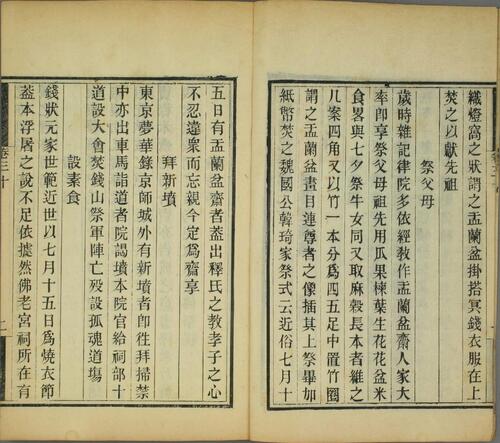 織燈窩之狀謂之盂蘭盆掛搭冥錢衣服在上
焚之以獻先祖
祭父母
歲時雜記律院多依經教作盂蘭盆齋人家大
率卽享祭父母祖先用瓜果楝葉生花花盆米
食畧與七夕祭牛女同又取麻穀長本者維之
几案四角又以竹一本分爲四五足中置竹圈
謂之盂蘭盆畫目連尊者之像插其上祭畢加
紙幣焚之魏國公韓琦家祭式云近俗七月十
五日有盂蘭盆齋者葢出釋氏之教孝子之心
不忍違衆而忘親今定爲齋享
拜新墳
東京夢華錄京師城外有新墳者卽徃拜掃禁
中亦出車馬詣道者院謁墳本院官給祠部十
道設大會焚錢山祭軍陣亡殁設孤魂道塲
設素食
錢狀元家世範近世以七月十五日爲燒衣節
葢本浮屠之說不足依據然佛老宮祠所在有
卷三十